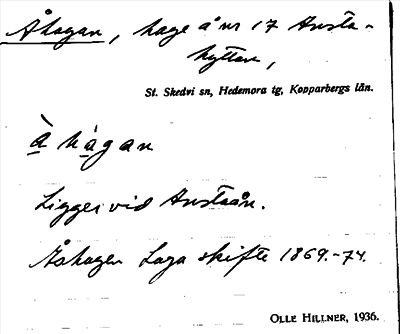 Åhagan, hage å nr 17 Ansta-
hyttan,
St. Skedvi sn, Hedemora tg, Kopparbergs län.
à hàgan
Ligger vid Anstaån.
Åhagen Laga skifte 1869-74.
OLLE HILLNER, 1936.